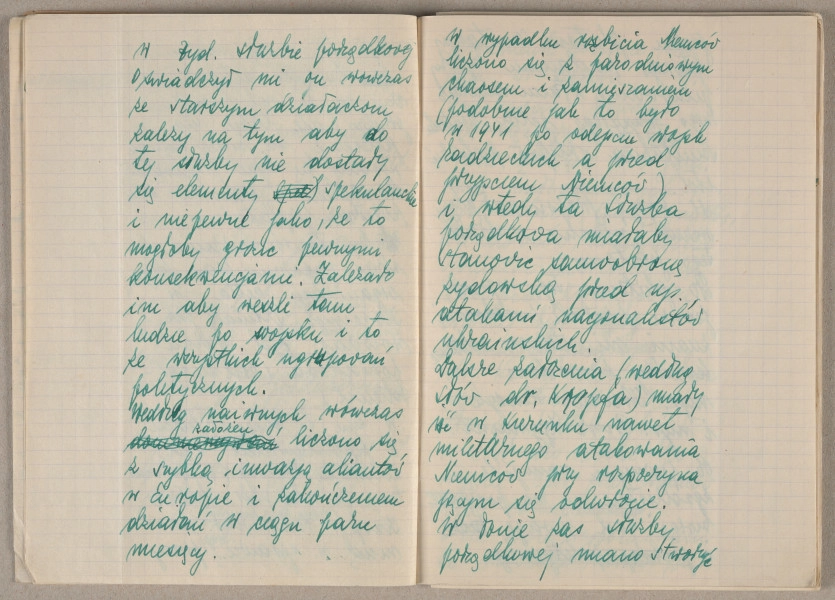 w żyd. służbie porządkowej
oświadczył mi on wówczas
że starszym działaczom
zależy na tym aby do
tej służby nie dostały
się elementy spekulanckie
i niepewne jako, że to
mogłoby grozić pewnymi
konsekwencjami. Zależało
im aby weszli tam
ludzie po wojsku i to
ze wszystkich ugrupowań
politycznych.
Według naiwnych wówczas
założeń liczono się
z szybką inwazją aliantów
w Europie i zakończeniem
działań w ciągu paru
miesięcy.
W wypadku rozbicia Niemców
liczono się z parodniowym
chaosem i zamieszaniem
(podobnie jak to było
w 1941 po odejściu wojsk
radzieckich a przed
przyjściem Niemców)
i wtedy ta służba
porządkowa miałaby
stanowić samoobronę
żydowską przed np.
atakami nacjonalistów
ukraińskich.
Dalsze założenia (według
słów dr. Kropfa) miały
iść w kierunku nawet
militarnego atakowania
Niemców przy rozpoczyna
jącym się odwrocie.
W łonie zaś służby
porządkowej miano stworzyć